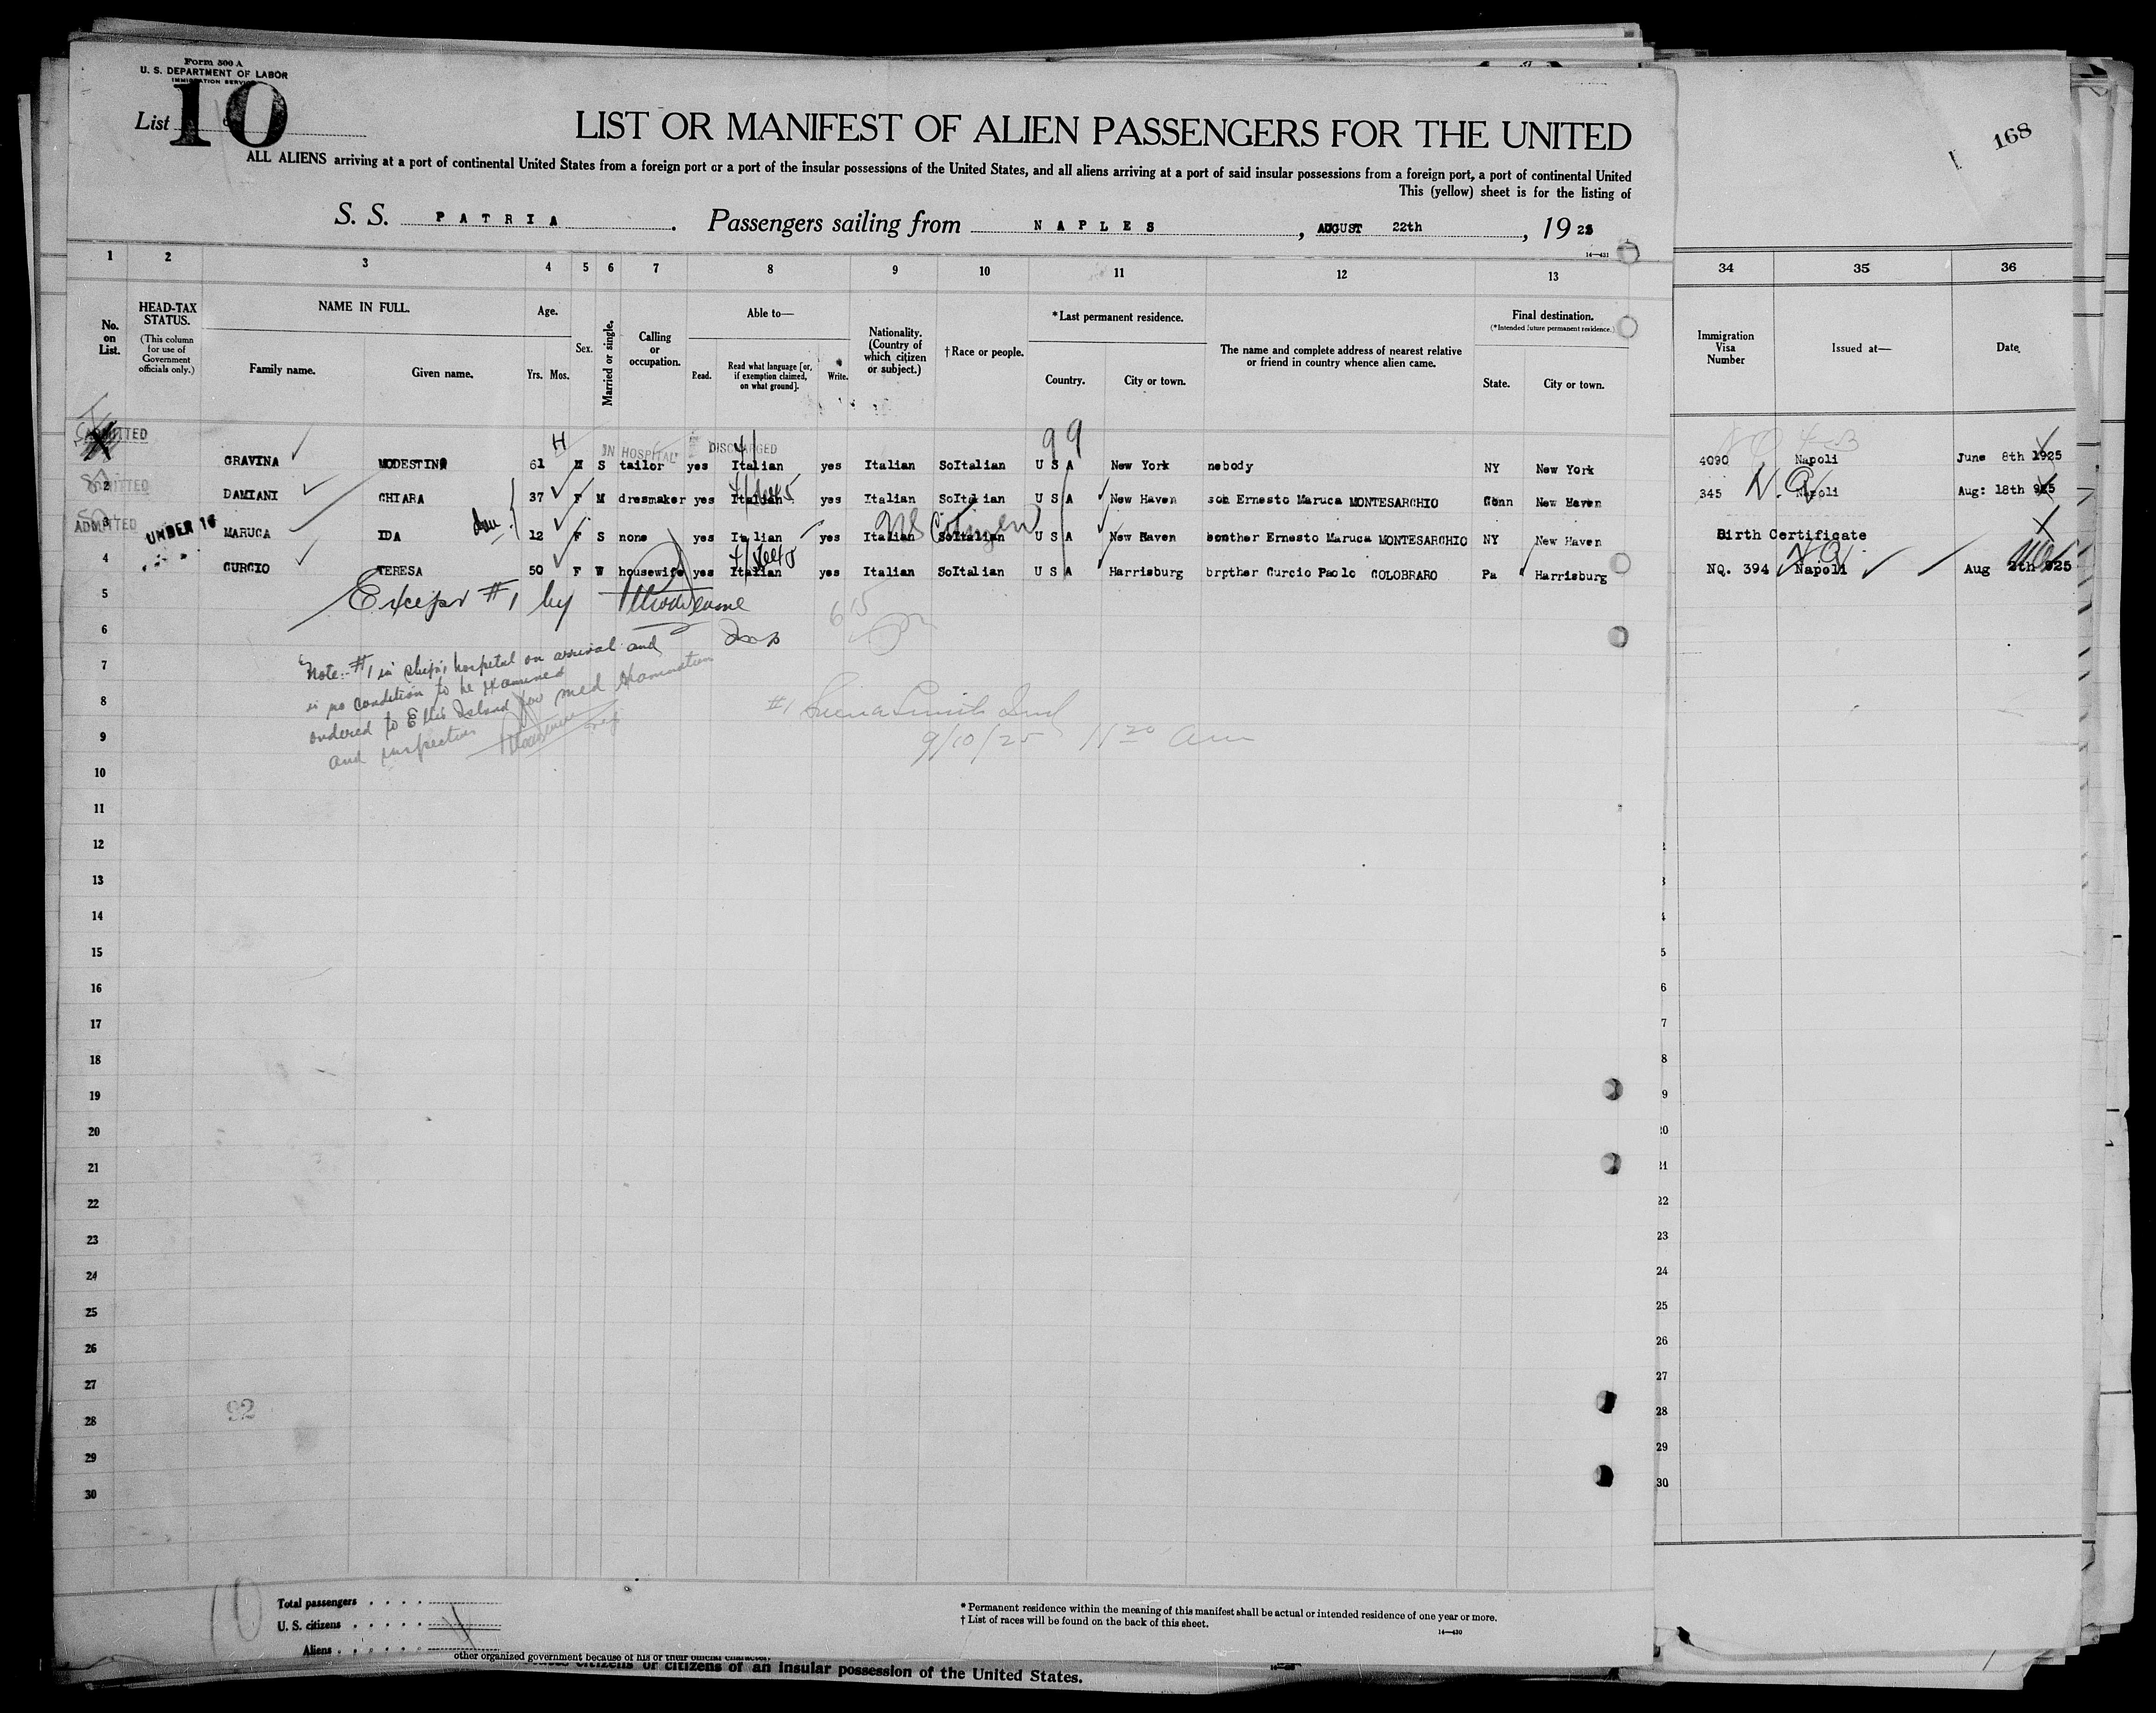 Form 500 A
U. S. DEPARTMENT OF LABOR
IMMIGRATION SERVICE
List 10
LIST OR MANIFEST OF ALIEN PASSENGERS FOR THE UNITED
ALL ALIENS arriving at a port of continental United States from a foreign port or a port of the insular possessions of the United States, and all aliens arriving at a port of said insular possessions from a foreign port, a port of continental United
This (yellow) sheet is for the listing of
168
S. S. PATRIA. Passengers sailing from NAPLES, AUGUST 22th, 1925
14—431
1 2 3 4 5 6 7 8 9 10 11 12 13 34 35 36
No. on List.
HEAD-TAX STATUS.
(This column for use of Government officials only.)
NAME IN FULL.
Family name. Given name.
Age.
Yrs. Mos.
Sex.
Married or single.
Calling or occupation.
Able to—
Read. Read what language [or, if exemption claimed, on what ground]. Write.
Nationality. (Country of which citizen or subject.)
†Race or people.
*Last permanent residence.
Country. City or town.
The name and complete address of nearest relative or friend in country whence alien came.
Final destination.
(*Intended future permanent residence.)
State. City or town.
Immigration Visa Number
Issued at—
Date.
ADMITTED H IN HOSPITAL DISCHARGED 99
GRAVINA MODESTINO 61 M S tailor yes Italian yes Italian SoItalian U S A New York nobody NY New York 4090 Napoli June 8th 1925
ADMITTED 2 DAMIANI CHIARA 37 F M dresmaker yes Italian yes Italian SoItalian U S A New Haven son Ernesto Maruca MONTESARCHIO Conn New Haven 345 N.Q. Napoli Aug: 18th 925
ADMITTED 3 UNDER 16 MARUCA IDA dau. 12 F S none yes Italian yes Italian SoItalian US Citizen U S A New Haven brother Ernesto Maruca MONTESARCHIO NY New Haven Birth Certificate
4 CURCIO TERESA 50 F W housewife yes Italian yes Italian SoItalian U S A Harrisburg brpther Curcio Paolo COLOBRARO Pa Harrisburg NQ. 394 Napoli Aug 2th 925
5
Except #1 by
6
Insp
615
7
Note:- #1 in ship's hospital on arrival and
in no condition to be examined
ordered to Ellis Island for med examination
and inspection
8
#1 Smith Insp
9
9/10/25 11 20 am
10
11
12
13
14
15
16
17
18
19
20
21
22
23
24
25
26
27
28
29
30
92
10
Total passengers
U. S. citizens
Aliens
* Permanent residence within the meaning of this manifest shall be actual or intended residence of one year or more.
† List of races will be found on the back of this sheet.
14—430
other organized government because of his or their official character.
citizens or citizens of an insular possession of the United States.